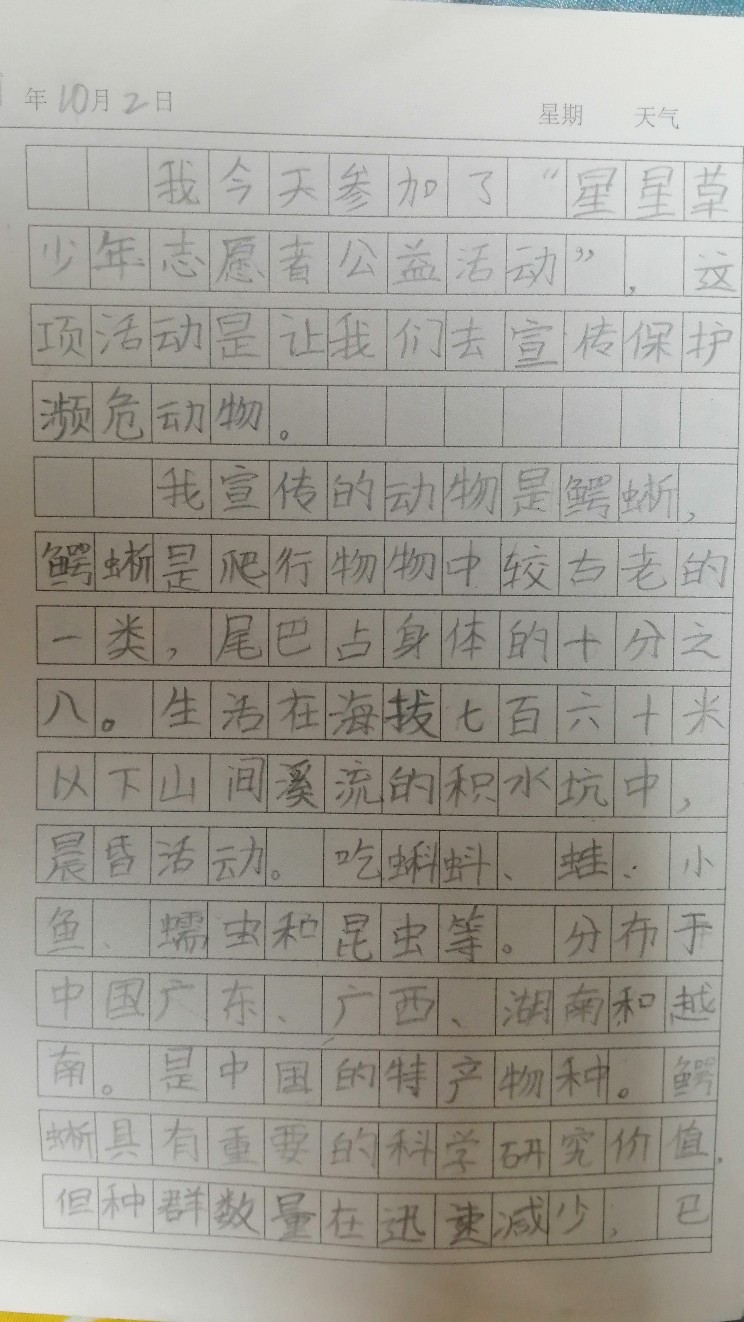 年10月2日 星期 天气
我今天参加了“星星草
少年志愿者公益活动”，这
项活动是让我们去宣传保护
濒危动物。
我宣传的动物是鳄蜥，
鳄蜥是爬行物物中较古老的
一类，尾巴占身体的十分之
八。生活在海拔七百六十米
以下山间溪流的积水坑中，
晨昏活动。吃蝌蚪、蛙、小
鱼、蠕虫和昆虫等。分布于
中国广东、广西、湖南和越
南。是中国的特产物种。鳄
蜥具有重要的科学研究价值.
但种群数量在迅速减少，已